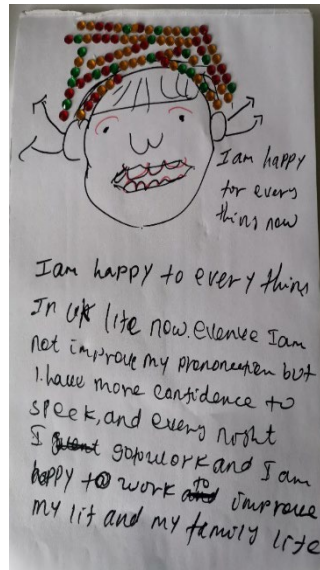 I am happy
for every
thing now
I am happy to every thing
In UK life now. evenee I am
not improve my prononcetion but
I. have more confidence to
speek, and every night
I gopwork and I am
happy to work to improve
my lif and my family life